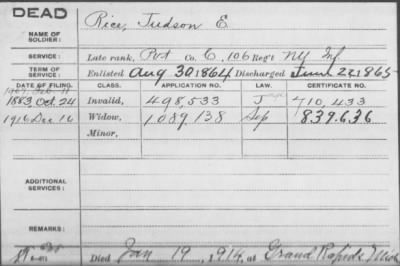 DEAD
NAME OF SOLDIER: Rice, Judson E.
SERVICE: Late rank, Pvt Co. C, 106 Reg't NY Inf.
TERM OF SERVICE: Enlisted Aug 30 1864 Discharged June 22 1865
DATE OF FILING. CLASS. APPLICATION NO. LAW. CERTIFICATE NO.
1907 Feb 11
1883 Oct. 24 Invalid, 498,533 J 710,433
1916 Dec 16 Widow, 1089138 Sep 839.636
Minor,
ADDITIONAL SERVICES:
REMARKS:
Died Jan 19, 1914, at Grand Rapids Mich